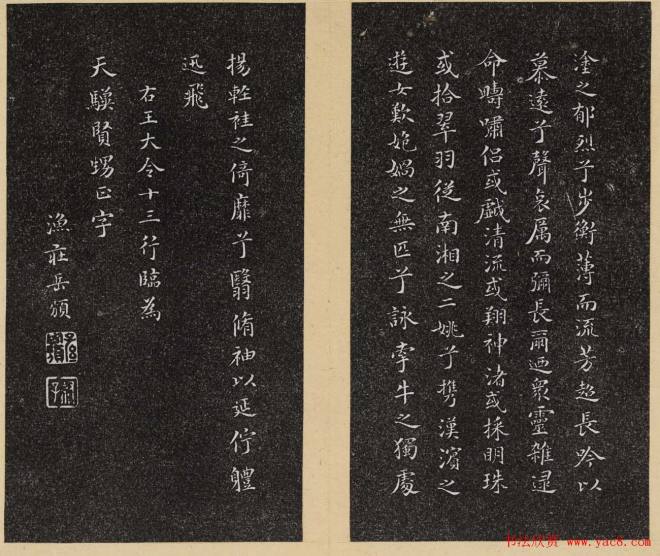 塗之郁烈兮步衡薄而流芳超長吟以
慕遠兮聲哀厲而彌長爾迺衆靈雜遝
命疇嘯侶或戲清流或翔神渚或採明珠
或拾翠羽從南湘之二姚兮携漢濱之
遊女歎媧之無匹兮詠牽牛之獨處
揚輕袿之倚靡兮翳脩袖以延佇體
迅飛
右王大令十三行臨為
天賢甥正字
漁莊岳頒
书法欣赏 www.yac8.com